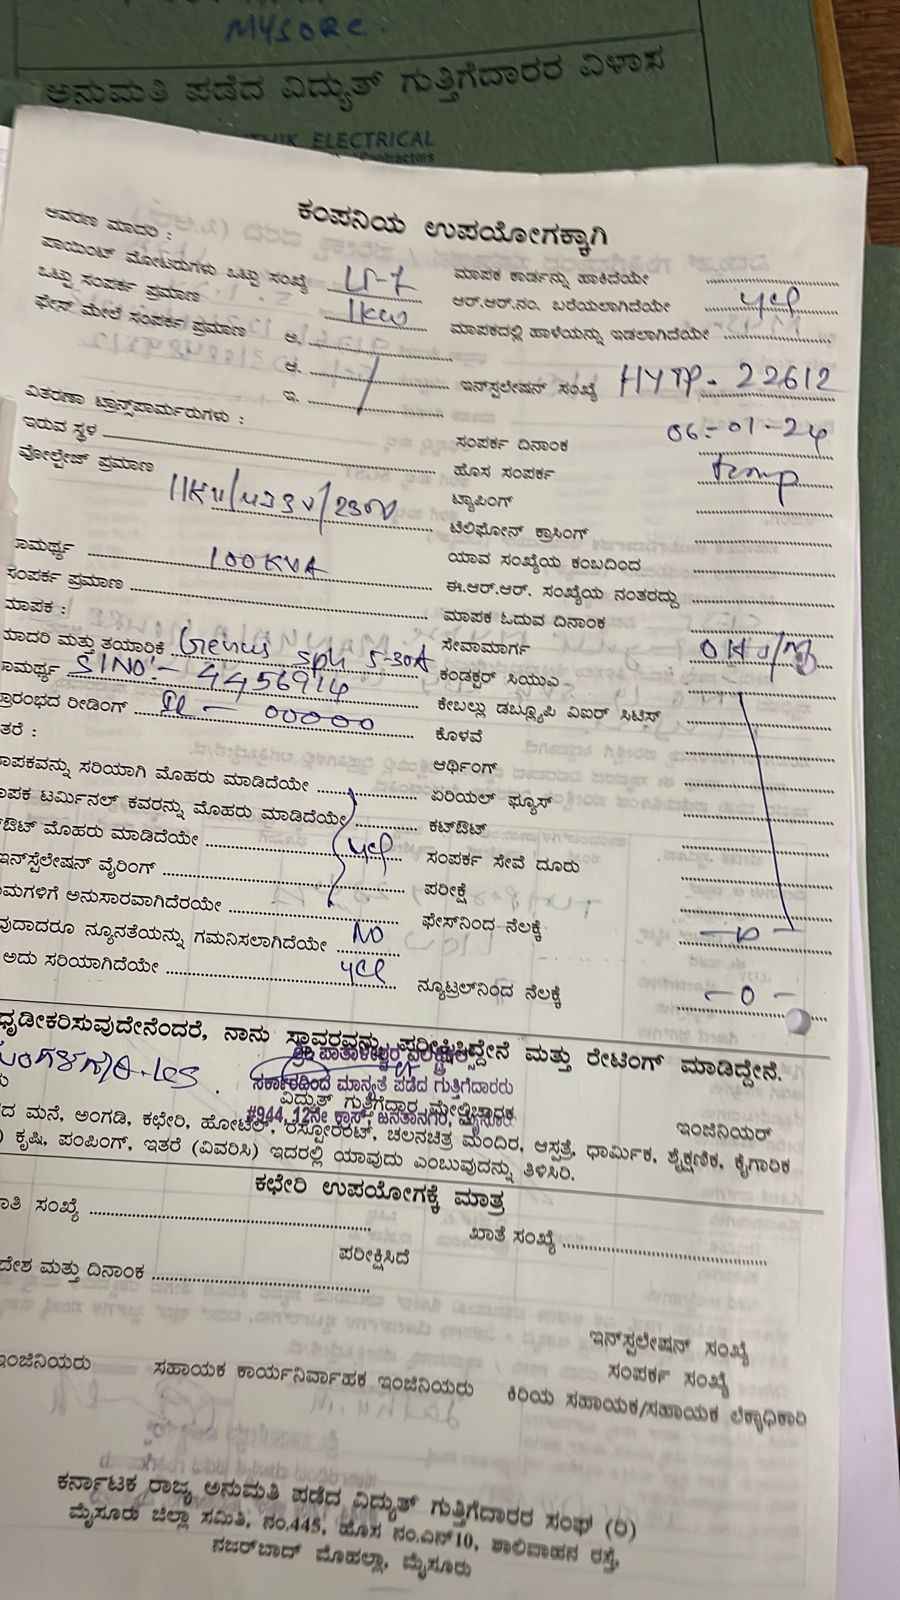 MYSORE.
ಅನುಮತಿ ಪಡೆದ ವಿದ್ಯುತ್ ಗುತ್ತಿಗೆದಾರರ ವಿಳಾಸ
ELECTRICAL
Contractors
ಕಂಪನಿಯ ಉಪಯೋಗಕ್ಕಾಗಿ
ಆವರಣ ಮಾದರಿ :
ಪಾಯಿಂಟ್ ಮೋಟರುಗಳು ಒಟ್ಟು ಸಂಖ್ಯೆ LT-7 ಮಾಪಕ ಕಾರ್ಡನ್ನು ಹಾಕಿದೆಯೇ
ಒಟ್ಟು ಸಂಪರ್ಕ ಪ್ರಮಾಣ 1KW ಆರ್.ಆರ್.ನಂ. ಬರೆಯಲಾಗಿದೆಯೇ yes
ಫೇಸ್ ಮೇಲೆ ಸಂಪರ್ಕ ಪ್ರಮಾಣ ಅ. ಮಾಪಕದಲ್ಲಿ ಹಾಳೆಯನ್ನು ಇಡಲಾಗಿದೆಯೇ
ಆ.
ಇ. ಇನ್‌ಸ್ಟಲೇಷನ್ ಸಂಖ್ಯೆ HYTP-22612
ವಿತರಣಾ ಟ್ರಾನ್ಸ್‌ಪಾರ್ಮರುಗಳು :
ಇರುವ ಸ್ಥಳ ಸಂಪರ್ಕ ದಿನಾಂಕ 06-01-24
ವೋಲ್ಟೇಜ್ ಪ್ರಮಾಣ ಹೊಸ ಸಂಪರ್ಕ temp
11KV/433V/230V ಟ್ಯಾಪಿಂಗ್
ಟೆಲಿಫೋನ್ ಕ್ರಾಸಿಂಗ್
ಸಾಮರ್ಥ್ಯ 100KVA ಯಾವ ಸಂಖ್ಯೆಯ ಕಂಬದಿಂದ
ಸಂಪರ್ಕ ಪ್ರಮಾಣ ಈ.ಆರ್.ಆರ್. ಸಂಖ್ಯೆಯ ನಂತರದ್ದು
ಮಾಪಕ : ಮಾಪಕ ಓದುವ ದಿನಾಂಕ
ಮಾದರಿ ಮತ್ತು ತಯಾರಿಕೆ Genus Sph 5-30A ಸೇವಾಮಾರ್ಗ
ಸಾಮರ್ಥ್ಯ Sl NO:- 4456914 ಕಂಡಕ್ಟರ್ ಸಿಯುಎ
ಪ್ರಾರಂಭದ ರೀಡಿಂಗ್ IR - 00000 ಕೇಬಲ್ಲು ಡಬ್ಲ್ಯೂಪಿ ವಿಐರ್ ಸಿಟಿಸ್
ಇತರೆ : ಕೊಳವೆ
ಆರ್ಥಿಂಗ್
ಮಾಪಕವನ್ನು ಸರಿಯಾಗಿ ಮೊಹರು ಮಾಡಿದೆಯೇ ಏರಿಯಲ್ ಫ್ಯೂಸ್
ಮಾಪಕ ಟರ್ಮಿನಲ್ ಕವರನ್ನು ಮೊಹರು ಮಾಡಿದೆಯೇ ಕಟ್‌ಔಟ್
ಕಟ್‌ಔಟ್ ಮೊಹರು ಮಾಡಿದೆಯೇ yes ಸಂಪರ್ಕ ಸೇವೆ ದೂರು
ಇನ್‌ಸ್ಟೆಲೇಷನ್ ವೈರಿಂಗ್ ಪರೀಕ್ಷೆ
ನಿಯಮಗಳಿಗೆ ಅನುಸಾರವಾಗಿದೆರಯೇ ಫೇಸ್‌ನಿಂದ ನೆಲಕ್ಕೆ
ಯಾವುದಾದರೂ ನ್ಯೂನತೆಯನ್ನು ಗಮನಿಸಲಾಗಿದೆಯೇ NO
ಅದು ಸರಿಯಾಗಿದೆಯೇ yes ನ್ಯೂಟ್ರಲ್‌ನಿಂದ ನೆಲಕ್ಕೆ - 0 -
ಧೃಡೀಕರಿಸುವುದೇನೆಂದರೆ, ನಾನು ಸ್ಥಾವರವನ್ನು ಪರೀಕ್ಷಿಸಿದ್ದೇನೆ ಮತ್ತು ರೇಟಿಂಗ್ ಮಾಡಿದ್ದೇನೆ.
ಶ್ರೀ ಪಾತಾಳೇಶ್ವರ
ಸರ್ಕಾರದಿಂದ ಮಾನ್ಯತೆ ಪಡೆದ ಗುತ್ತಿಗೆದಾರರು
ವಿದ್ಯುತ್ ಗುತ್ತಿಗೆದಾರ ಮೇಲ್ವಿಚಾರಕ
#944, 12ನೇ ಕ್ರಾಸ್, ಜನತಾನಗರ, ಮೈಸೂರು
ಇಂಜಿನಿಯರ್
ಮನೆ, ಅಂಗಡಿ, ಕಛೇರಿ, ಹೋಟೆಲ್, ರೆಸ್ಟೋರೆಂಟ್, ಚಲನಚಿತ್ರ ಮಂದಿರ, ಆಸ್ಪತ್ರೆ, ಧಾರ್ಮಿಕ, ಶೈಕ್ಷಣಿಕ, ಕೈಗಾರಿಕ
) ಕೃಷಿ, ಪಂಪಿಂಗ್, ಇತರೆ (ವಿವರಿಸಿ) ಇದರಲ್ಲಿ ಯಾವುದು ಎಂಬುವುದನ್ನು ತಿಳಿಸಿರಿ.
ಕಛೇರಿ ಉಪಯೋಗಕ್ಕೆ ಮಾತ್ರ
ಸಂಖ್ಯೆ ಖಾತೆ ಸಂಖ್ಯೆ
ಪರೀಕ್ಷಿಸಿದೆ
ಮತ್ತು ದಿನಾಂಕ
ಇನ್‌ಸ್ಟಲೇಷನ್ ಸಂಖ್ಯೆ
ಸಂಪರ್ಕ ಸಂಖ್ಯೆ
ಇಂಜಿನಿಯರು ಸಹಾಯಕ ಕಾರ್ಯನಿರ್ವಾಹಕ ಇಂಜಿನಿಯರು ಕಿರಿಯ ಸಹಾಯಕ/ಸಹಾಯಕ ಲೆಕ್ಕಾಧಿಕಾರಿ
ಕರ್ನಾಟಕ ರಾಜ್ಯ ಅನುಮತಿ ಪಡೆದ ವಿದ್ಯುತ್ ಗುತ್ತಿಗೆದಾರರ ಸಂಘ (ರಿ)
ಮೈಸೂರು ಜಿಲ್ಲಾ ಸಮಿತಿ, ನಂ.445, ಹೊಸ ನಂ.ಎನ್10, ಶಾಲಿವಾಹನ ರಸ್ತೆ,
ನಜರ್‌ಬಾದ್ ಮೊಹಲ್ಲಾ, ಮೈಸೂರು